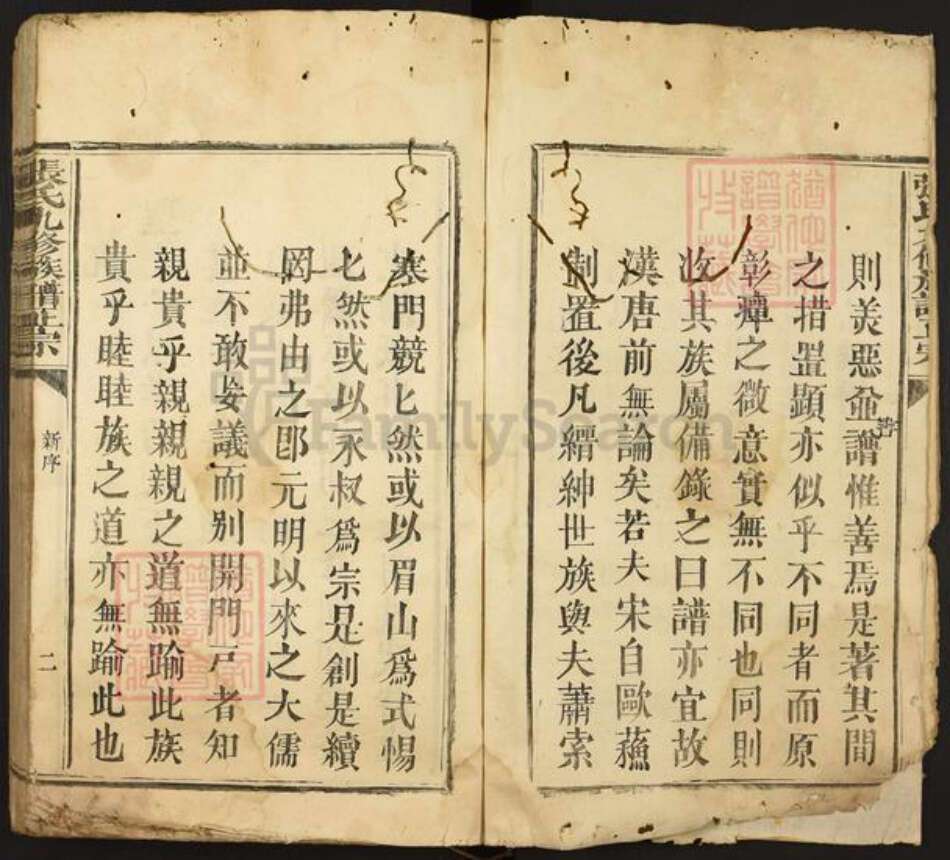 則美惡並譜惟善焉是著其間
皆
之措置顯亦似乎不同者而原
彰癉之微意實無不同也同則
收其族屬備錄之曰譜亦宜故
漢唐前無論矣若夫宋自歐蘓
制置後凡縉紳世族與夫蕭索
寒門競匕然或以眉山爲式惕
匕然或以永叔爲宗是創是續
罔弗由之卽元明以來之大儒
並不敢妄議而别開門戸者知
親貴乎親親親之道無踰此族
貴乎睦睦族之道亦無踰此也
張氏九修族譜正宗
新序
二
FamilySearch